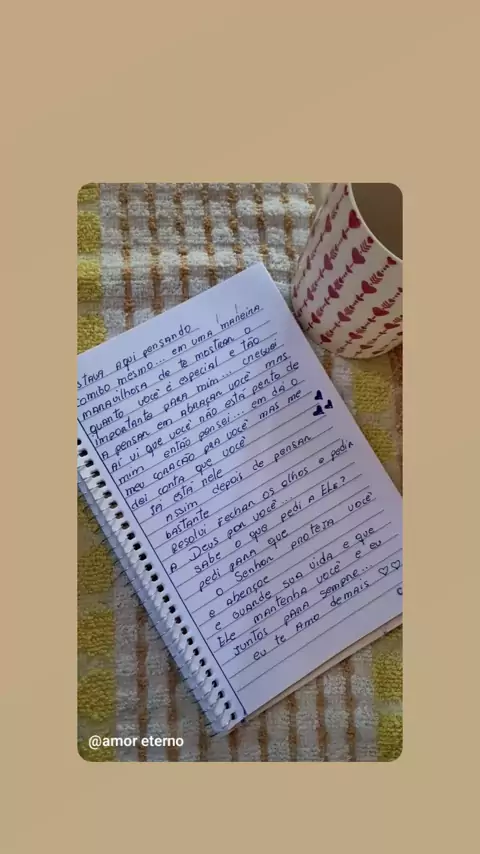 stava aqui pensando
comigo mesmo... em uma maneira
maravilhosa de te mostrar o
quanto você é especial e tão
importante para mim... cheguei
a pensar em abraçar você mas
aí vi que você não está perto de
mim, então pensei... em dá o
meu coração pra você mas me
dei conta que você
já está nele
Assim depois de pensar
bastante
Resolvi fechar os olhos e pedir
a Deus por você...
Sabe o que pedi a Ele?
Pedi para que
o Senhor proteja você
e abençoe
e guarde sua vida e que
Ele mantenha você e eu
juntos para sempre...
eu te amo demais ♡♡
@amor eterno